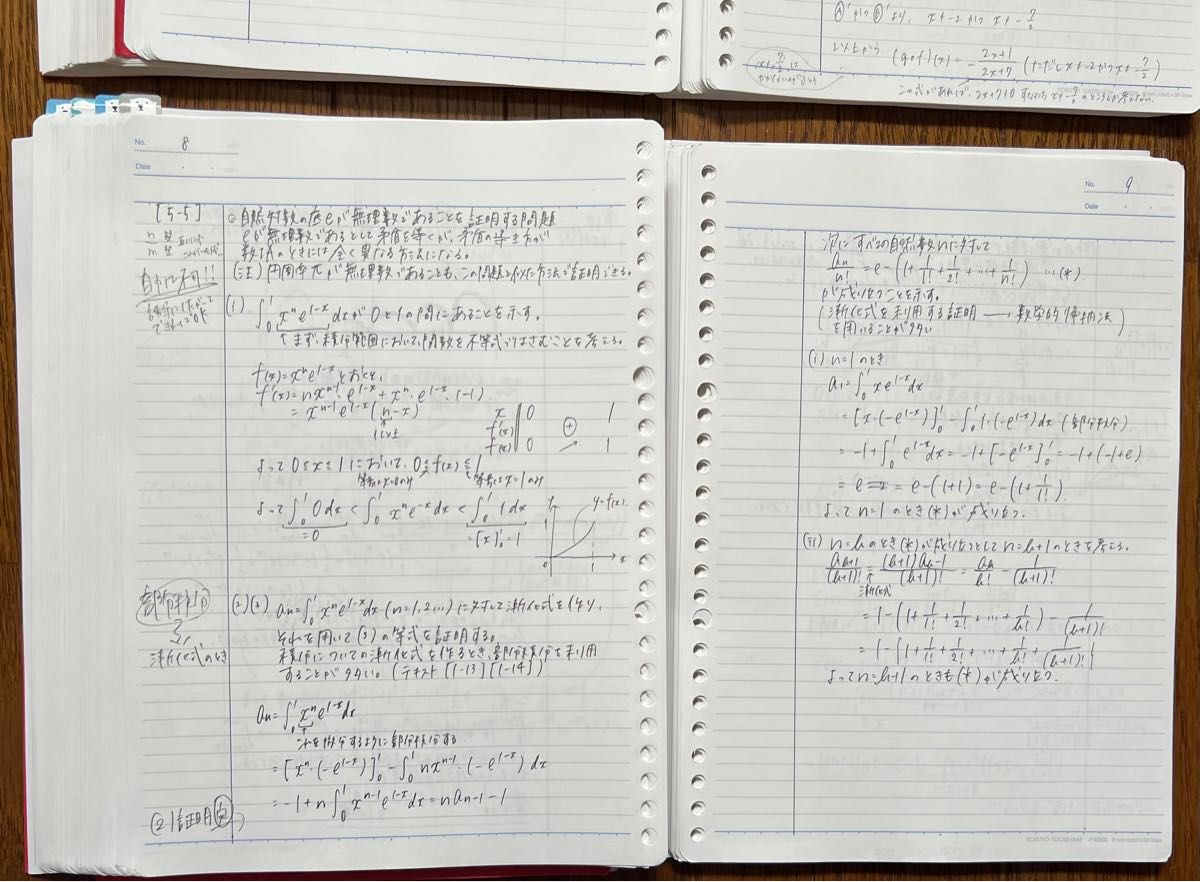 Ⓐ'かつⒷ'より、x≠-2かつx≠-7/2
以上から (g∘f)(x) = -(2x+1)/(2x+7) (ただしx≠-2かつx≠-7/2)
この式があれば、2x+7≠0 すなわち x≠-7/2
No. 8
Date
[5-5]
◎自然対数の底eが無理数であることを証明する問題
eが無理数であるとして矛盾を導くが、矛盾の導き方が
数ⅠAのときとは全く異なる方法になる。
(注) 円周率πが無理数であることも、この問題と似た方法で証明できる。
(1) ∫₀¹ xⁿe^(1-x)dxが0と1の間にあることを示す。
まず、積分範囲において、関数を不等式ではさむことを考える。
f(x)=xⁿe^(1-x)とおくと、
f'(x)=nx^(n-1)・e^(1-x)+xⁿ・e^(1-x)・(-1)
=x^(n-1)e^(1-x)(n-x)
1以上
x 0 1
f'(x) ⊕
f(x) 0 ↗ 1
よって0≦x≦1において、0≦f(x)≦1
等号はx=0のみ 等号はx=1のみ
よって ∫₀¹ 0dx < ∫₀¹ xⁿe^(1-x)dx < ∫₀¹ 1dx
=0 =[x]₀¹=1
y=f(x)
部分積分
漸化式のとき
(2)(3) aₙ=∫₀¹ xⁿe^(1-x)dx (n=1,2,…)に対して漸化式を作り、
それを用いて(3)の等式を証明する。
積分についての漸化式を作るとき、部分積分を利用
することが多い。(テキスト[1-13][1-14])
aₙ=∫₀¹ xⁿe^(1-x)dx
これを微分するように部分積分する
=[xⁿ・(-e^(1-x))]₀¹-∫₀¹ nx^(n-1)・(-e^(1-x))dx
=-1+n∫₀¹ x^(n-1)e^(1-x)dx=naₙ₋₁-1
(2)証明
No. 9
Date
次にすべての自然数nに対して
aₙ/n! = e-(1+1/1!+1/2!+…+1/n!) …(*)
が成り立つことを示す。
(漸化式を利用する証明 → 数学的帰納法
を用いることが多い)
(i) n=1のとき
a₁=∫₀¹ xe^(1-x)dx
=[x・(-e^(1-x))]₀¹-∫₀¹ 1・(-e^(1-x))dx (部分積分)
=-1+∫₀¹ e^(1-x)dx=-1+[-e^(1-x)]₀¹=-1+(-1+e)
=e-2=e-(1+1)=e-(1+1/1!)
よってn=1のとき(*)が成り立つ。
(ii) n=kのとき(*)が成り立つとしてn=k+1のときを考える。
aₖ₊₁/(k+1)! = ((k+1)aₖ-1)/(k+1)! = aₖ/k! - 1/(k+1)!
漸化式
=1-(1+1/1!+1/2!+…+1/k!)-1/(k+1)!
=1-{1+1/1!+1/2!+…+1/k!+1/(k+1)!}
よってn=k+1のときも(*)が成り立つ。